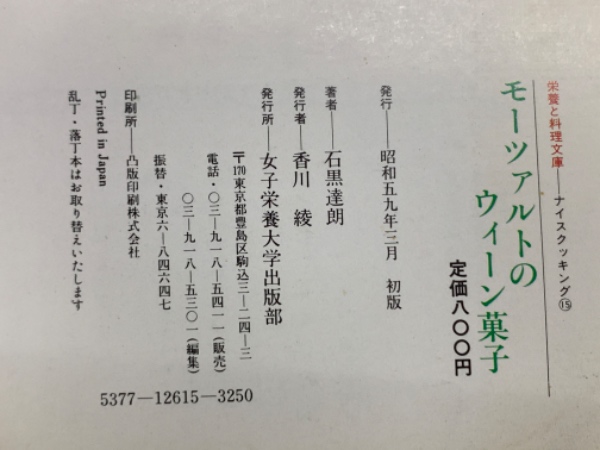 栄養と料理文庫──ナイスクッキング⑮
モーツァルトの
ウィーン菓子
定価八〇〇円
発行──昭和五九年三月 初版
著者──石黒達朗
発行者──香川 綾
発行所──女子栄養大学出版部
〒170東京都豊島区駒込三―二四―三
電話・〇三―九一八―五四一一(販売)
〇三―九一八―五三〇一(編集)
振替・東京六―八四六四七
印刷所──凸版印刷株式会社
Printed in Japan
乱丁・落丁本はお取り替えいたします
5377―12615―3250